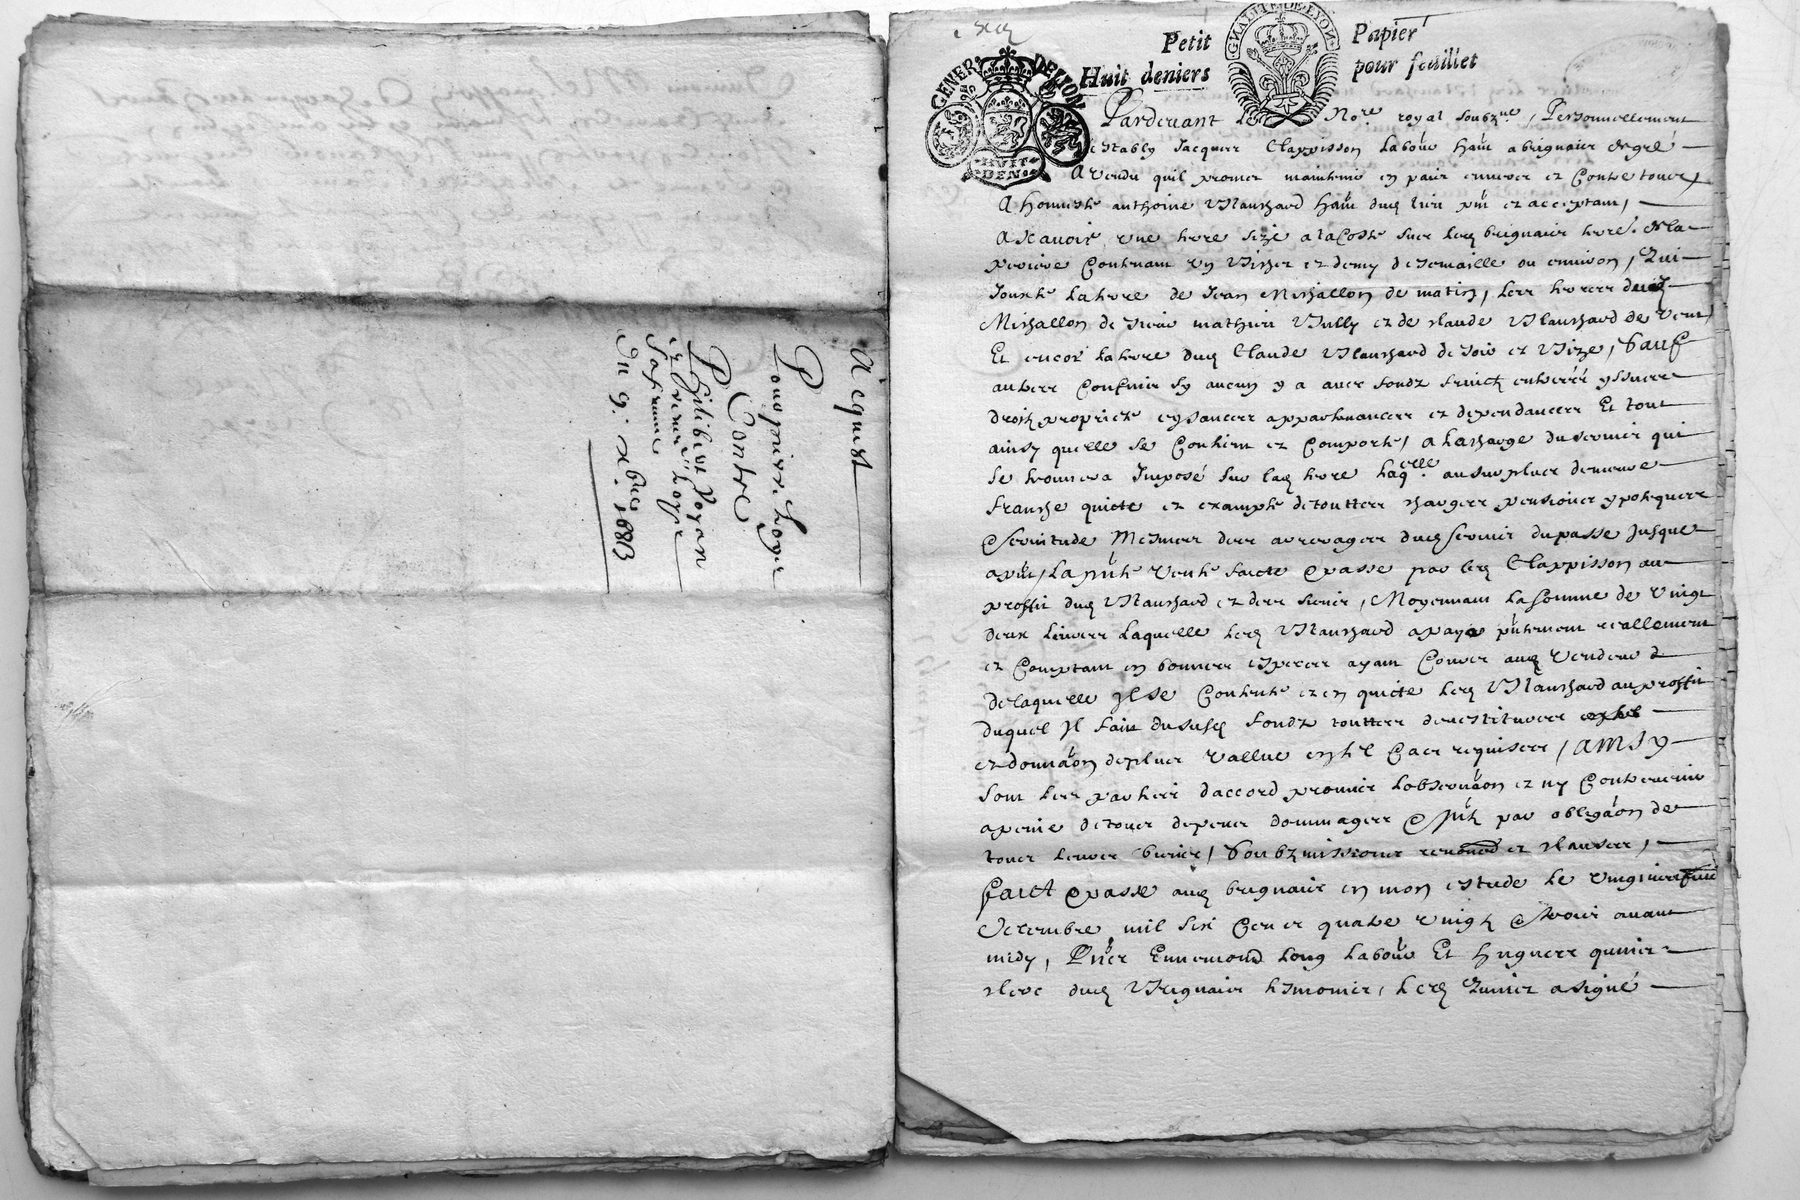 Acquest
Pour pierre Loyer
Contre
Philibert Poyan
et Pierre Loyse
sa femme
Du 9. Xbre 1683
Petit Papier
Huit deniers pour feuillet
GENER DE LION
HUIT DEN
GNALITE DE LYON
Pardevant le Nore royal soubzne, Personnellement
estably Jacques Clappisson labour hant a brignais de gré
A vendu quil promet maintenir en paix envers et Contre tous,
A honneste anthoine Blanchard hant dud lieu pnt et acceptant,
Ascavoir, une terre size a la Coste sur led brignais terre de la
periere Contenant un Bichet et demy de semaille ou environ, Qui
Jouxte la terre de Jean Michallon de matin, les terres dud
Michallon de Mathieu Bully et de Claude Blanchard de vent
Et encor la terre dud Claude Blanchard de soir et Bize, Sauf
autres Confins sy aucun y a avec fondz fruictz entrées yssues
droitz proprietés aysances appartenances et dependances Et tout
ainsy quelle se Contient et Comporte, A la charge du servis qui
se trouvera Imposé sur lad terre laqelle au surplus demeure
franche quicte et exampte de touttes charges pensions ypoteques
Servitude Mesmes des arrerages dud servis du passe Jusque
a pnt, La pnte vente faicte et passe par led Clappisson au
proffit dud Blanchard et des siens, Moyennant la somme de vingt
deux livres laquelle led Blanchard a paye pntement reallement
et Comptant en bonnes especes ayant Cours aud Vendeur
de laquelle Il se Contente et en quicte led Blanchard au proffit
duquel Il fait du susd fondz touttes devestitures
et donnaon de plus vallue en tel Cas requises, AINSY
sont les parties daccord promis lobservaon et ny Contrevenir
a peine de tous depens dommages et Intz par obligaon de
tous leurs biens, Soubzmissions renond et clauses,
FaiCt et passé aud brignais en mon estude le
decembre mil six Cens quatre vingtz et trois avant
midy, Pns Ennemond Long labour Et hugues qunier
clerc dud Brignais tsmoins, led Qunier a signé